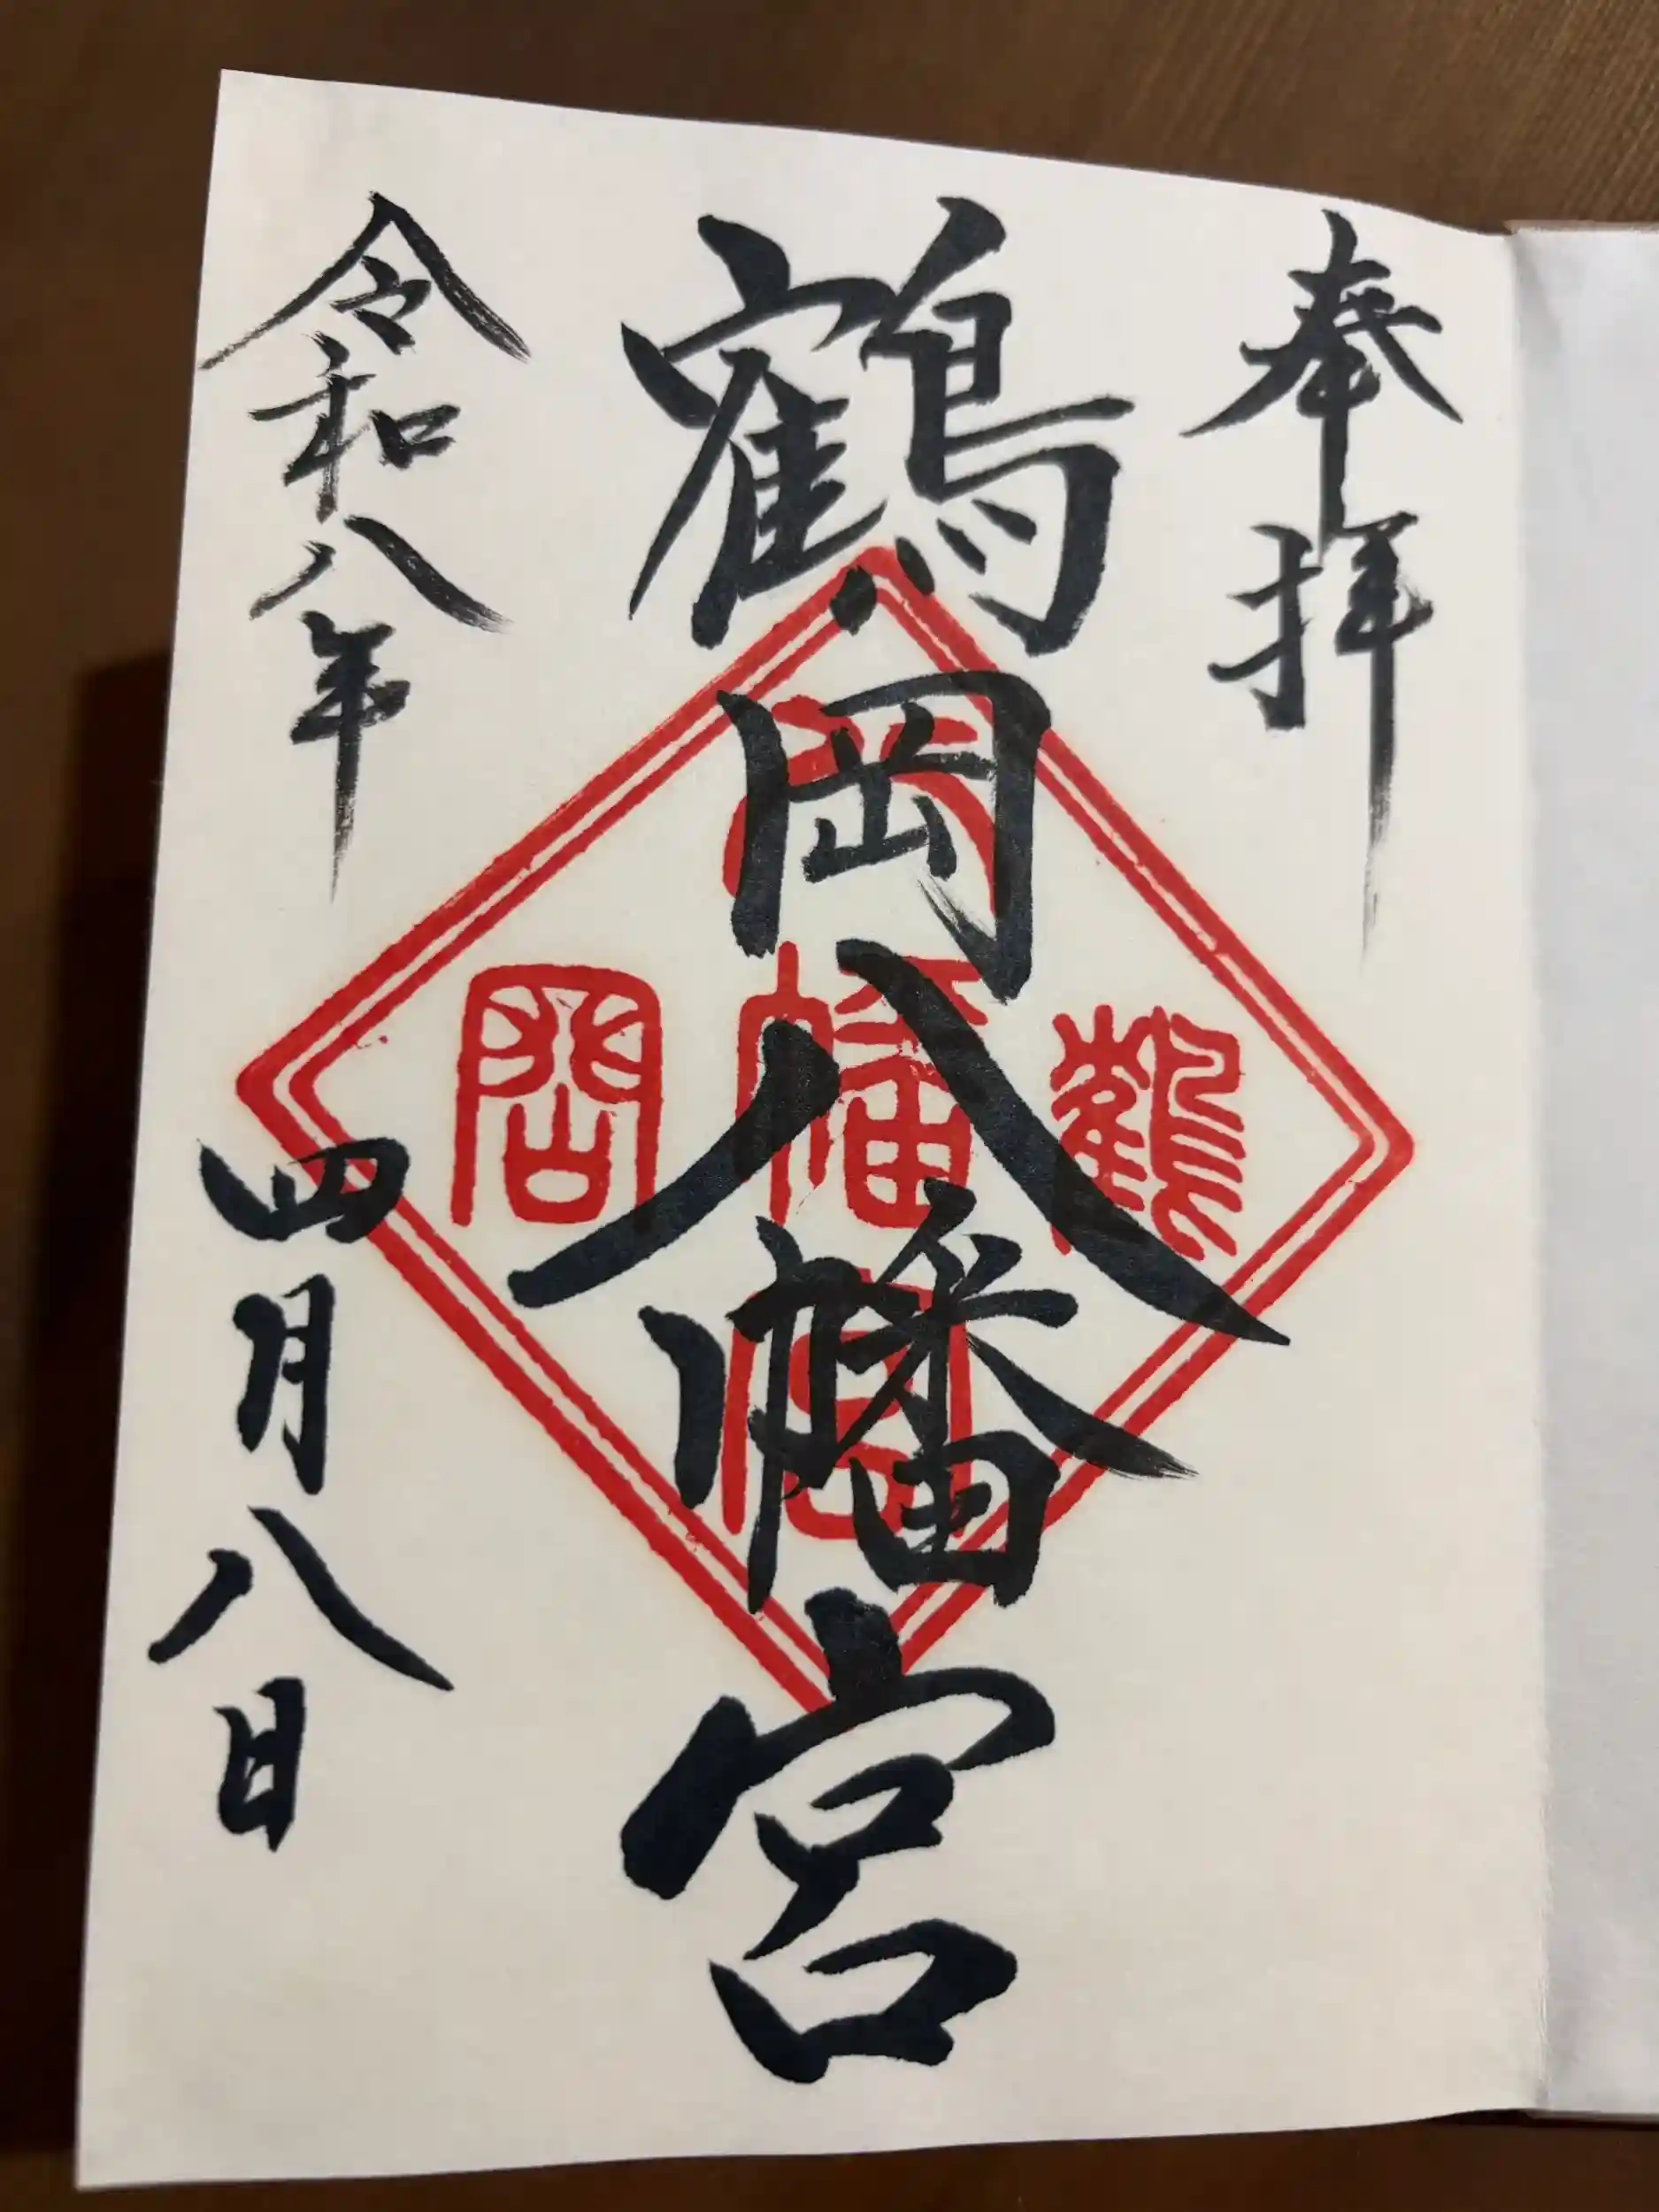 奉拝
鶴岡八幡宮
令和八年
四月八日
鶴
八
幡
宮
岡